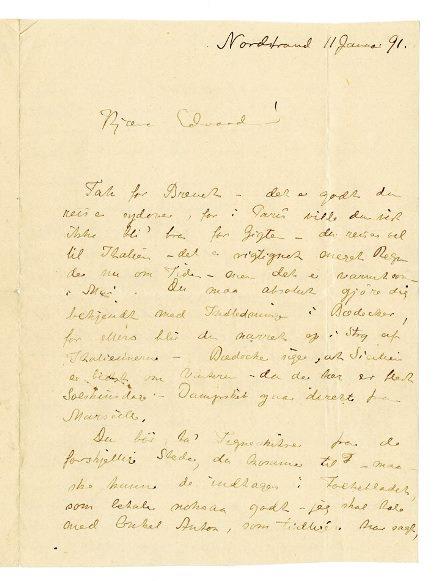 Nordstrand 11 Janua 91.
Kjære Edvard!
Tak for Brevet – det er godt du
reiser sydover, for i Paris vilde du vist
ikke bli' bra for Gigten – du reiser vel
til Italien – det er rigtignok meget Regn
der nu om Tiden – men det er varmt som
i Mai. Du maa absolut gjöre dig
bekjendt med Indledningen i Bædeker,
for ellers blir du narret op i Stry af
Italienerne – Bædecker siger, at Sicilien
er bedst om Vinteren – da der har er flest
Solskinsdage – Dampskib gaar direkte fra
Marseille.
Du bör ta' Tegneskitser fra de
forskjellige Steder, du kommer til – maa-
ske kunne de indtages i Folkebladet,
som betaler noksaa godt – jeg skal tale
med Onkel Anton, som tidligere har sagt,